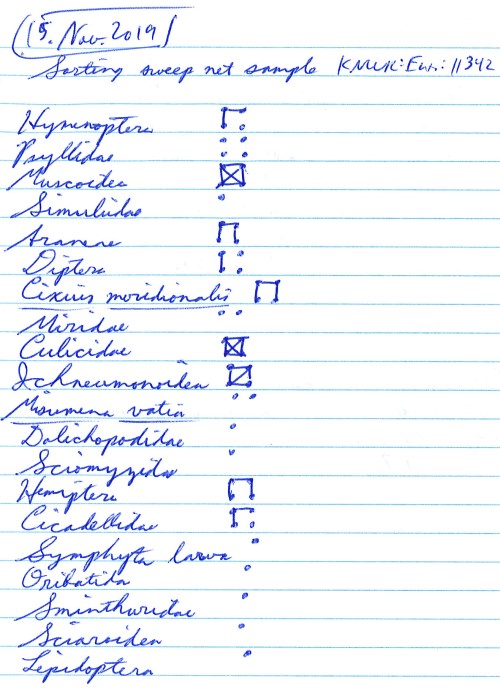 15. Nov. 2019
Sorting sweep net sample KNWR:Ento:11342
Hymenoptera
Psyllidae
Muscoidea
Simuliidae
Araneae
Diptera
Cixius meridionalis
Miridae
Culicidae
Ichneumonoidea
Misumena vatia
Dolichopodidae
Sciomyzidae
Hemiptera
Cicadellidae
Symphyta larva
Oribatida
Sminthuridae
Sciaroidea
Lepidoptera